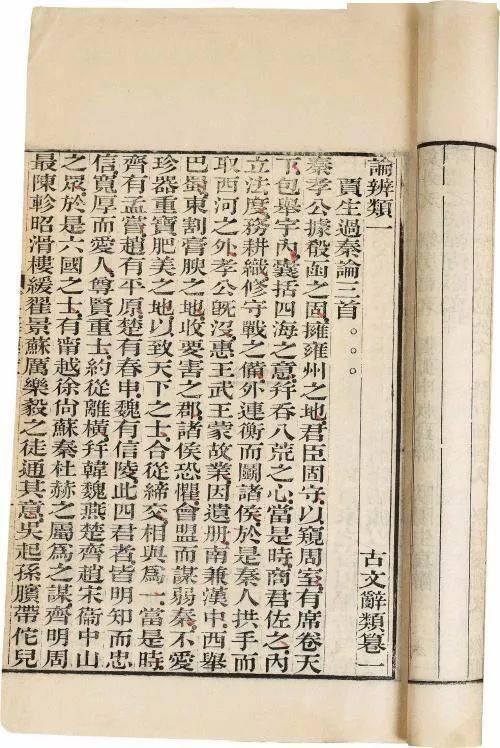 論辨類一 古文辭類篹一
賈生過秦論三首。。。
秦孝公據殽函之固擁雍州之地君臣固守以窺周室有席卷天
下包舉宇內囊括四海之意幷吞八荒之心當是時商君佐之內
立法度務耕織修守戰之備外連衡而鬬諸侯於是秦人拱手而
取西河之外孝公旣沒惠王武王蒙故業因遺册南兼漢中西舉
巴蜀東割膏腴之地收要害之郡諸侯恐懼會盟而謀弱秦不愛
珍器重寶肥美之地以致天下之士合從締交相與爲一當是時
齊有孟嘗趙有平原楚有春申魏有信陵此四君者皆明知而忠
信寬厚而愛人尊賢重士約從離橫幷韓魏燕楚齊趙宋衞中山
之眾於是六國之士有甯越徐尙蘇秦杜赫之屬爲之謀齊明周
最陳軫昭滑樓緩翟景蘇厲樂毅之徒通其意吳起孫臏帶佗兒